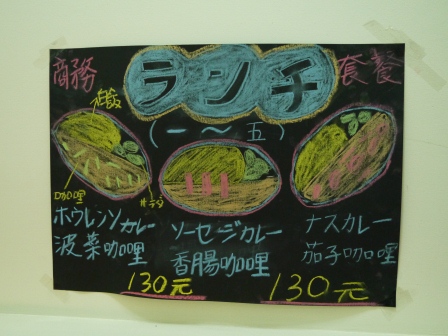 商務 ランチ 套餐
(一～五)
白飯
咖哩
ホウレンソカレー
菠菜咖哩
130元
ソーセージカレー
香腸咖哩
ナスカレー
茄子咖哩
130元